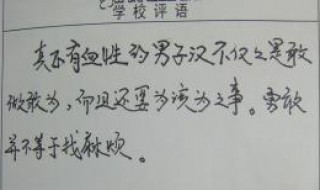 学校评语
真正有血性的男子汉不仅仅是敢
做敢为，而且还要为该为之事。勇敢
并不等于找麻烦。